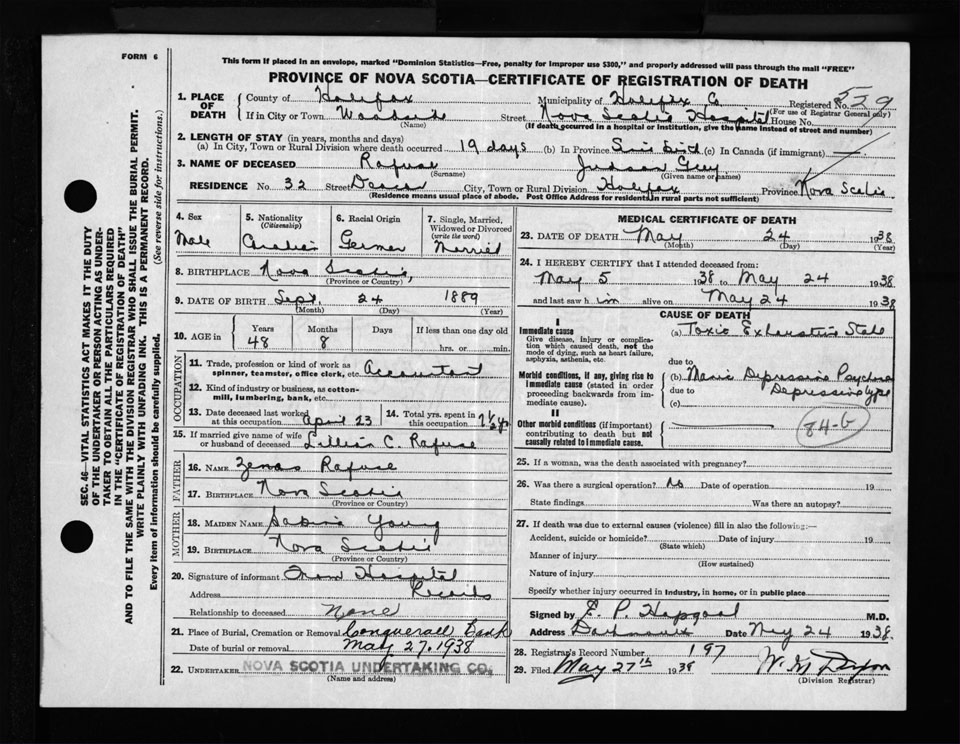 FORM 6
This form if placed in an envelope, marked "Dominion Statistics—Free, penalty for improper use $300," and properly addressed will pass through the mail "FREE"
PROVINCE OF NOVA SCOTIA—CERTIFICATE OF REGISTRATION OF DEATH
SEC. 46—VITAL STATISTICS ACT MAKES IT THE DUTY
OF THE UNDERTAKER OR PERSON ACTING AS UNDER-
TAKER TO OBTAIN ALL THE PARTICULARS REQUIRED
IN THE "CERTIFICATE OF REGISTRATION OF DEATH"
AND TO FILE THE SAME WITH THE DIVISION REGISTRAR WHO SHALL ISSUE THE BURIAL PERMIT.
WRITE PLAINLY WITH UNFADING INK. THIS IS A PERMANENT RECORD.
Every item of information should be carefully supplied. (See reverse side for instructions.)
1. PLACE OF DEATH
County of Halifax Municipality of Halifax Co Registered No. 529
(For use of Registrar General only)
If in City or Town Woodside Street Nova Scotia Hospital House No.
(Name) (If death occurred in a hospital or institution, give the name instead of street and number)
2. LENGTH OF STAY (in years, months and days)
(a) In City, Town or Rural Division where death occurred 19 days (b) In Province Since Birth (c) In Canada (if immigrant) —
3. NAME OF DECEASED Rafuse Judson Guy
(Surname) (Given name or names)
RESIDENCE No. 32 Street City, Town or Rural Division Halifax Province Nova Scotia
(Residence means usual place of abode. Post Office Address for residents in rural parts not sufficient)
4. Sex
Male
5. Nationality
(Citizenship)
Canadian
6. Racial Origin
German
7. Single, Married, Widowed or Divorced
(write the word)
Married
8. BIRTHPLACE Nova Scotia,
(Province or Country)
9. DATE OF BIRTH Sept. 24 1889
(Month) (Day) (Year)
10. AGE in Years Months Days If less than one day old
48 8 hrs. or min.
OCCUPATION
11. Trade, profession or kind of work as
spinner, teamster, office clerk, etc. Accountant
12. Kind of industry or business, as cotton-
mill, lumbering, bank, etc.
13. Date deceased last worked
at this occupation April 23
14. Total yrs. spent in
this occupation 7½ yrs
15. If married give name of wife
or husband of deceased Lillian C. Rafuse
FATHER
16. NAME Zenas Rafuse
17. BIRTHPLACE Nova Scotia
(Province or Country)
MOTHER
18. MAIDEN NAME Sabina Young
19. BIRTHPLACE Nova Scotia
(Province or Country)
20. Signature of informant From Hospital
Address Records
Relationship to deceased None
21. Place of Burial, Cremation or Removal Conquerall Bank
Date of burial or removal May 27, 1938
22. UNDERTAKER NOVA SCOTIA UNDERTAKING CO.
(Name and address)
MEDICAL CERTIFICATE OF DEATH
23. DATE OF DEATH May 24 1938
(Month) (Day) (Year)
24. I HEREBY CERTIFY that I attended deceased from:
May 5 1938 to May 24 1938
and last saw him alive on May 24 1938
CAUSE OF DEATH
I
Immediate cause
Give disease, injury or complica-
tion which caused death, not the
mode of dying, such as heart failure,
asphyxia, asthenia, etc.
(a) Toxic Exhaustive State
due to
Morbid conditions, if any, giving rise to
immediate cause (stated in order
proceeding backwards from im-
mediate cause).
(b) Manic Depressive Psychosis
due to Depressive type
(c)
II
Other morbid conditions (if important)
contributing to death but not
causally related to immediate cause.
84-b
25. If a woman, was the death associated with pregnancy?
26. Was there a surgical operation? No Date of operation 19
State findings Was there an autopsy?
27. If death was due to external causes (violence) fill in also the following:—
Accident, suicide or homicide? Date of injury 19
(State which)
Manner of injury
(How sustained)
Nature of injury
Specify whether injury occurred in industry, in home, or in public place
Signed by E. P. Hapgood M.D.
Address Dartmouth Date May 24 1938.
28. Registrar's Record Number 197
29. Filed May 27th 1938
(Division Registrar)